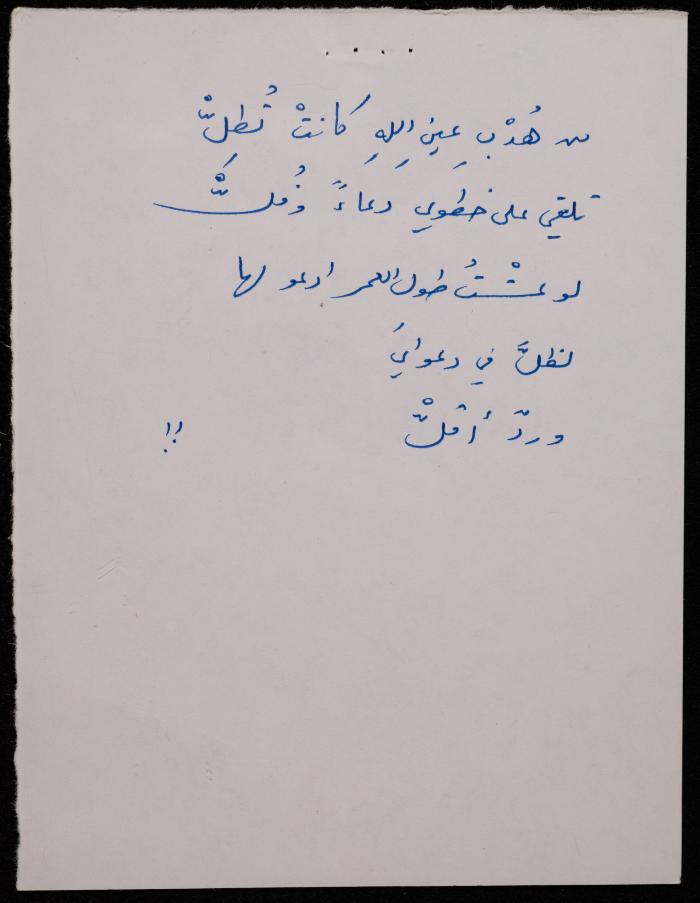 ....
من هُدْبِ عينِ اللهِ كانتْ تُطلّْ
تلقي على خطوي دعاءً وفُلّْ
لو عشْتُ طول العمر ادعو لها
لظلَّ في دعوايَ
وردٌ أقلّْ !!